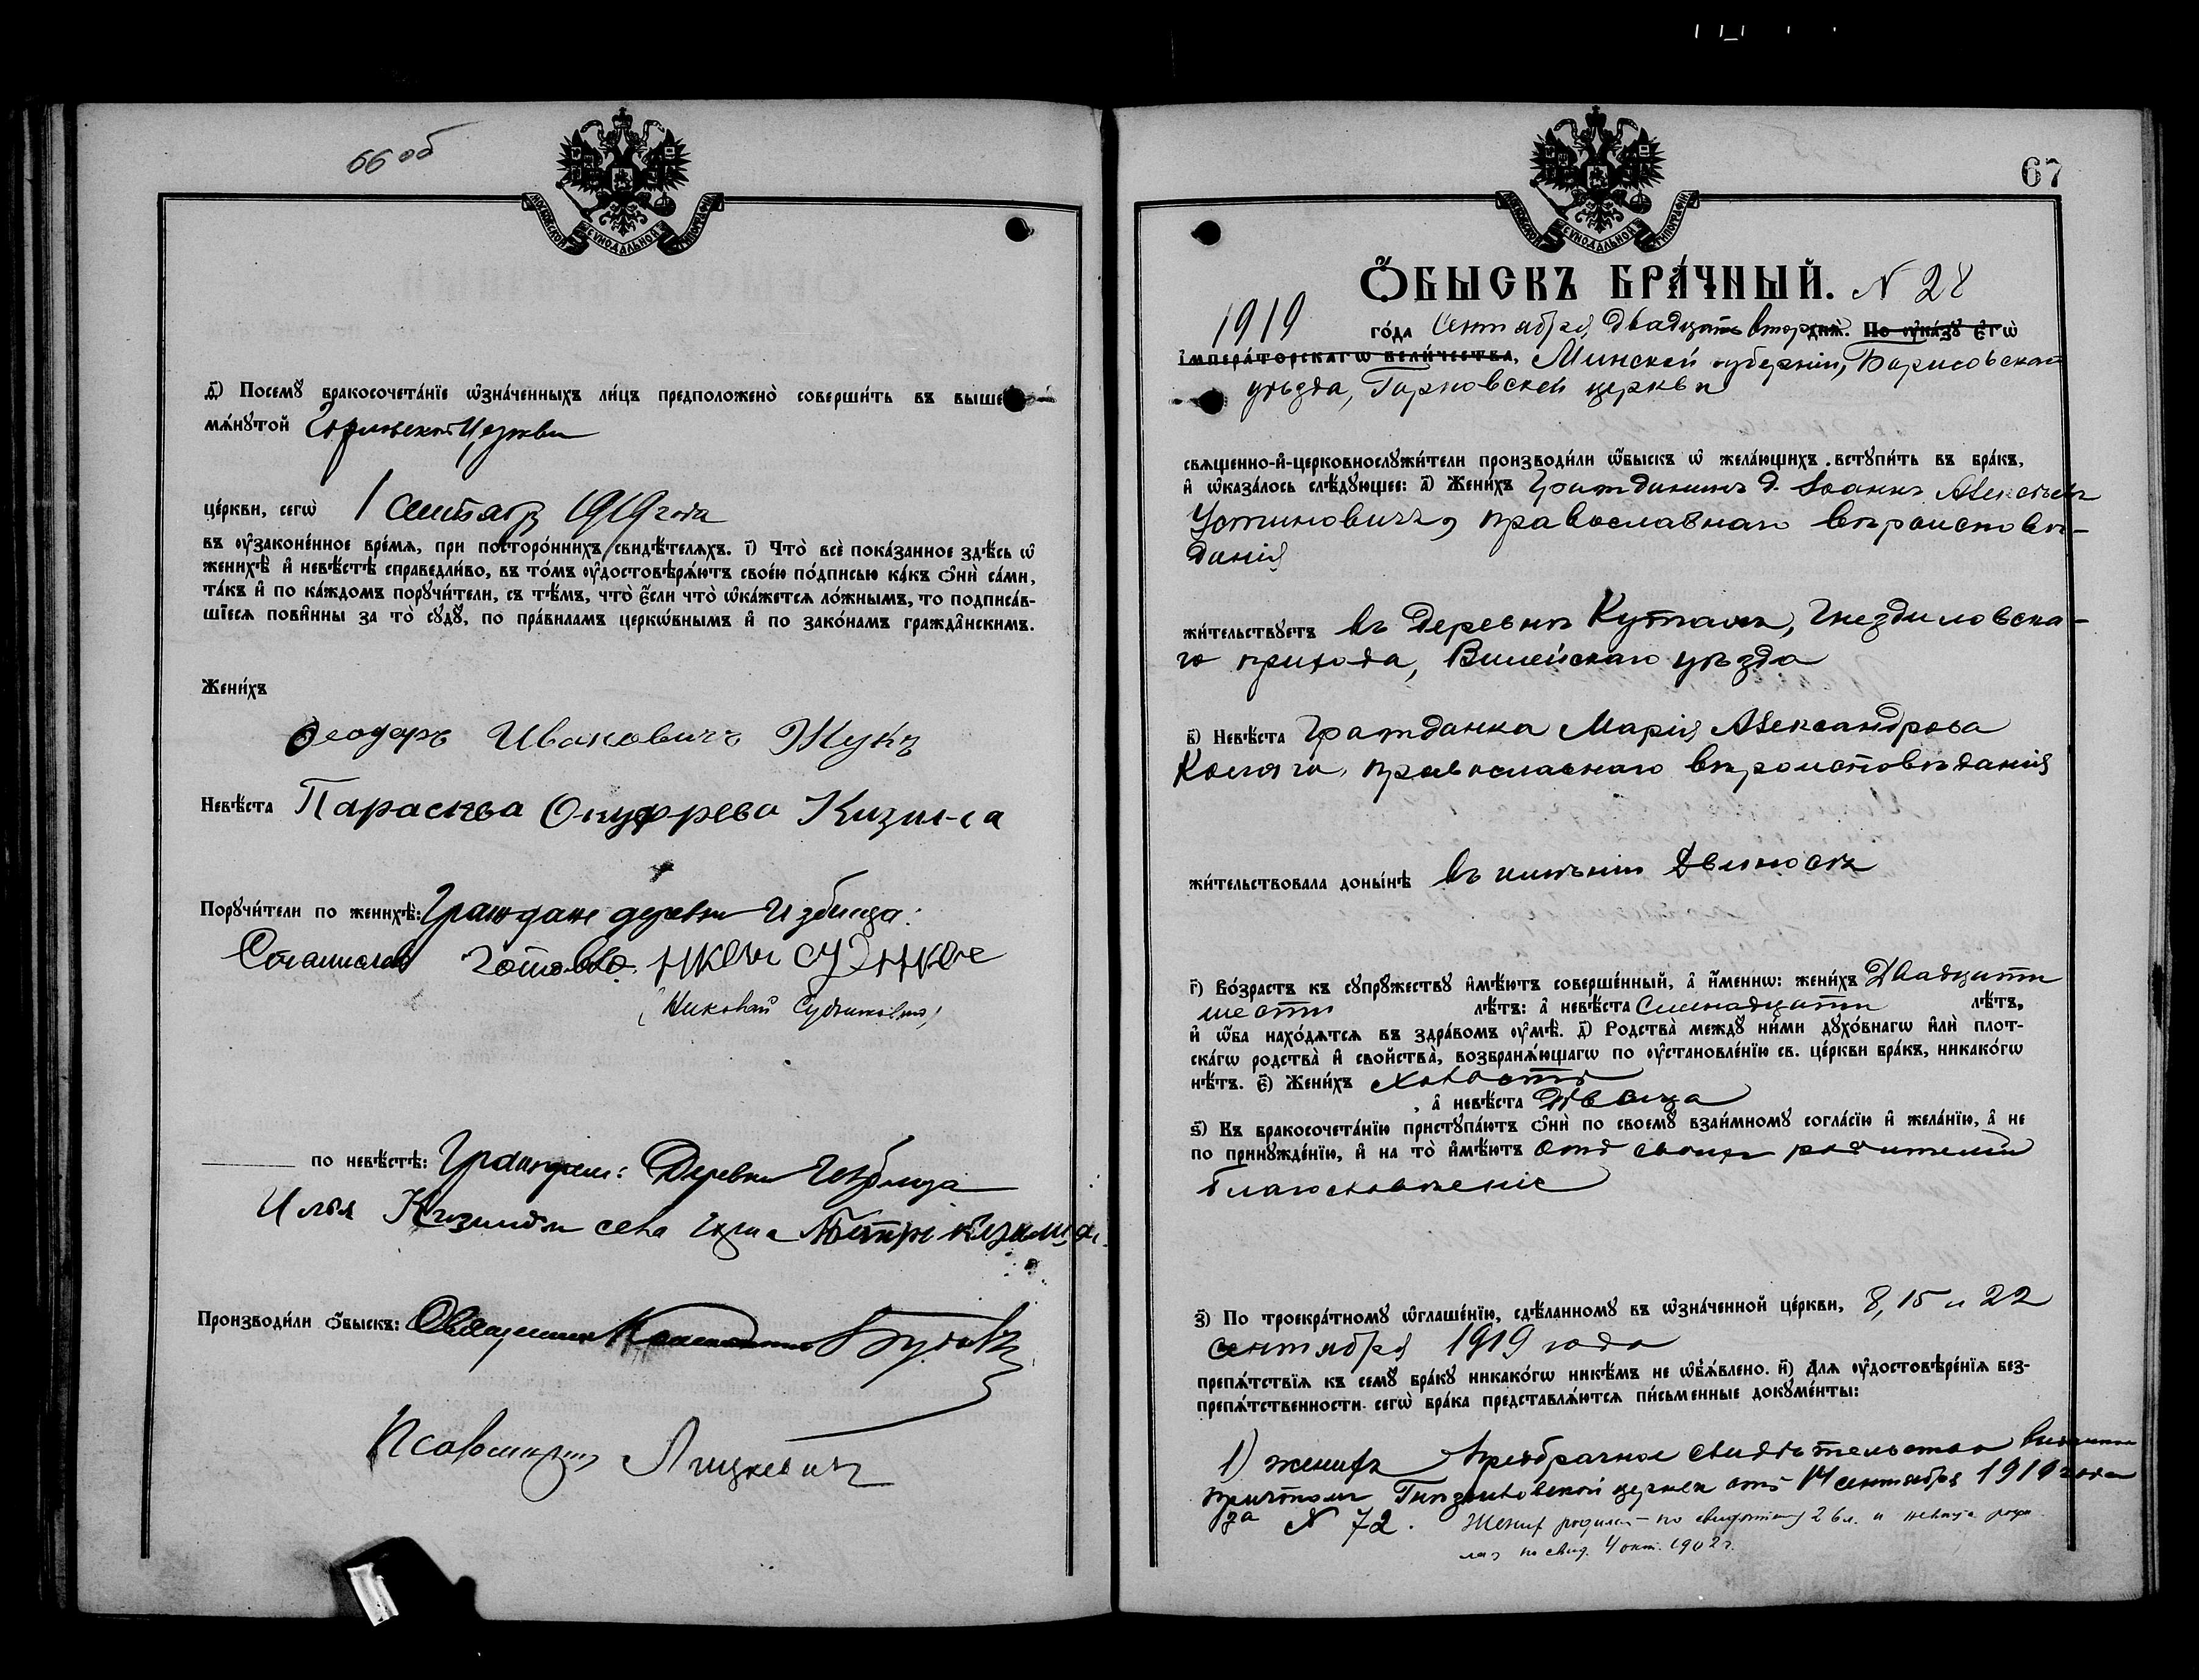 66 об
МОСКОВСКОЙ СѴНОДАЛЬНОЙ ТИПОГРАФІИ
д҃і) Посемꙋ̀ бракосочета́нїе ѡ҆зна́ченныхъ ли́цъ предположено̀ соверши́ть въ выше
мѧ́нꙋтой Церкви
це́ркви, сегѡ̀ 1 сентабр 1919 года
въ ᲂу҆зако́ненное вре́мѧ, при посторо́ннихъ свидѣ́телѧхъ. і҃) Что̀ всѐ пока́занное здѣ́сь ѡ҆
женихѣ̀ и҆ невѣ́стѣ справедли́во, въ то́мъ ᲂу҆достовѣрѧ́ютъ свое́ю по́дписью ка́къ ѻ҆нѝ са́ми,
та́къ и҆ по ка́ждомъ порꙋчи́тели, съ тѣ́мъ, что̀ є҆́сли что̀ ѡ҆ка́жетсѧ ло́жнымъ, то подписа́в-
шїесѧ пови́нны за то̀ сꙋдꙋ̀, по пра́виламъ церкѡ́внымъ и҆ по зако́намъ гражда́нскимъ.
Жени́хъ
Ѳеодоръ Ивановичъ Жукъ
Невѣ́ста Параскева Онуфрева Кизина
Порꙋчи́тели по женихѣ̀: Граждане деревни Избища:
Станислав Готовко
(Николай Судниковичъ)
по невѣ́стѣ: Граждане: Деревни Избища
Илья
Производи́ли ѻ҆́быскъ: Священник Константинъ Бутовъ
Псаломщикъ Лицкевичъ
67
МОСКОВСКОЙ СѴНОДАЛЬНОЙ ТИПОГРАФІИ
Ѻ҆́БЫСКЪ БРА́ЧНЫЙ. N 28
1919 го́да Сентября двадцать втор днѧ̀. По ᲂу҆ка́зꙋ є҆гѡ̀
і҆мпера́торскагѡ вели́чества, Минской губерніи, Борисовскаго
уѣзда, Гарновской церкви
свѧще́нно-и҆-церковнослꙋжи́тели производи́ли ѻ҆́быскъ ѡ҆ жела́ющихъ вступи́ть въ бра́къ,
и҆ ѡ҆каза́лось слѣ́дꙋющее: а҃) Жени́хъ Гражданинъ д. Іоаннъ Алексѣевъ
Устиновичъ, православнаго вѣроисповѣ-
данія
жи́тельствꙋетъ въ деревнѣ Куталях, Гнездиловска-
го прихода, Вилейскаго уѣзда
в҃) Невѣ́ста Гражданка Марія Александрова
православнаго вѣроисповѣданія
жи́тельствовала доны́нѣ въ имѣніи Двиносѣ
г҃) Во́зрастъ къ сꙋпрꙋ́жествꙋ и҆мѣ́ютъ соверше́нный, а҆ и҆́меннѡ: жени́хъ Двадцати
шести лѣ́тъ: а҆ невѣ́ста Семнадцати лѣ́тъ,
и҆ ѻ҆́ба нахо́дѧтсѧ въ здра́вомъ ᲂу҆мѣ̀. д҃) Родства̀ междꙋ̀ ни́ми дꙋхо́внагѡ и҆лѝ плот-
ска́гѡ родства̀ и҆ свойства̀, возбранѧ́ющагѡ по ᲂу҆становле́нїю св. це́ркви бра́къ, никако́гѡ
нѣ́тъ. є҃) Жени́хъ холостъ
, а҆ невѣ́ста дѣвица
ѕ҃) Къ бракосочета́нїю пристꙋпа́ютъ ѻ҆нѝ по своемꙋ̀ взаи́мномꙋ согла́сїю и҆ жела́нїю, а҆ не
по принꙋжде́нїю, и҆ на то̀ и҆мѣ́ютъ отъ своихъ родителей
благословеніе
з҃) По троекра́тномꙋ ѡ҆глаше́нїю, сдѣ́ланномꙋ въ ѡ҆зна́ченной це́ркви, 8, 15 и 22
сентября 1919 года
препѧ́тствїѧ къ семꙋ̀ бра́кꙋ никако́гѡ никѣ́мъ не ѡ҆б̾ѧ́влено. и҃) Длѧ ᲂу҆достовѣре́нїѧ без-
препѧ́тственности сегѡ̀ бра́ка представлѧ́ютсѧ пи́сьменные докꙋме́нты:
1) жениха предбрачное свидѣтельство
причтом Гнѣздиловской церкви отъ 14 сентября 1919 года
за N 72. Жених родился по 26 л. и невѣста роди
лась по свид. 4 окт. 1902 г.